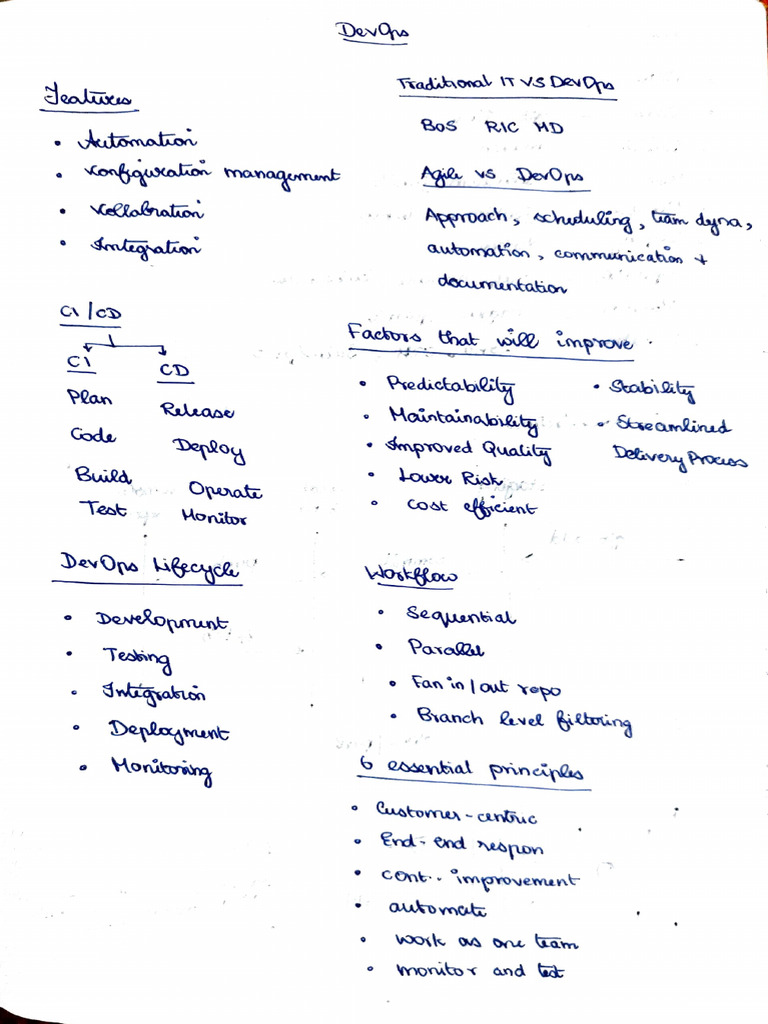 DevOps
Features
• Automation
• Configuration management
• Collabration
• Integration
CI / CD
CI
Plan
Code
Build
Test
CD
Release
Deploy
Operate
Monitor
DevOps Lifecycle
• Development
• Testing
• Integration
• Deployment
• Monitoring
Traditional IT VS DevOps
BOS RIC MD
Agile vs DevOps
Approach, scheduling, team dyna,
automation, communication +
documentation
Factors that will improve
• Predictability
• Maintainability
• Improved Quality
• Lower Risk
• cost efficient
• Stability
• Streamlined
Delivery Process
Workflow
• Sequential
• Parallel
• Fan in / out repo
• Branch level filtering
6 essential principles
• Customer - centric
• End - end respon
• cont.. improvement
• automate
• work as one team
• monitor and test